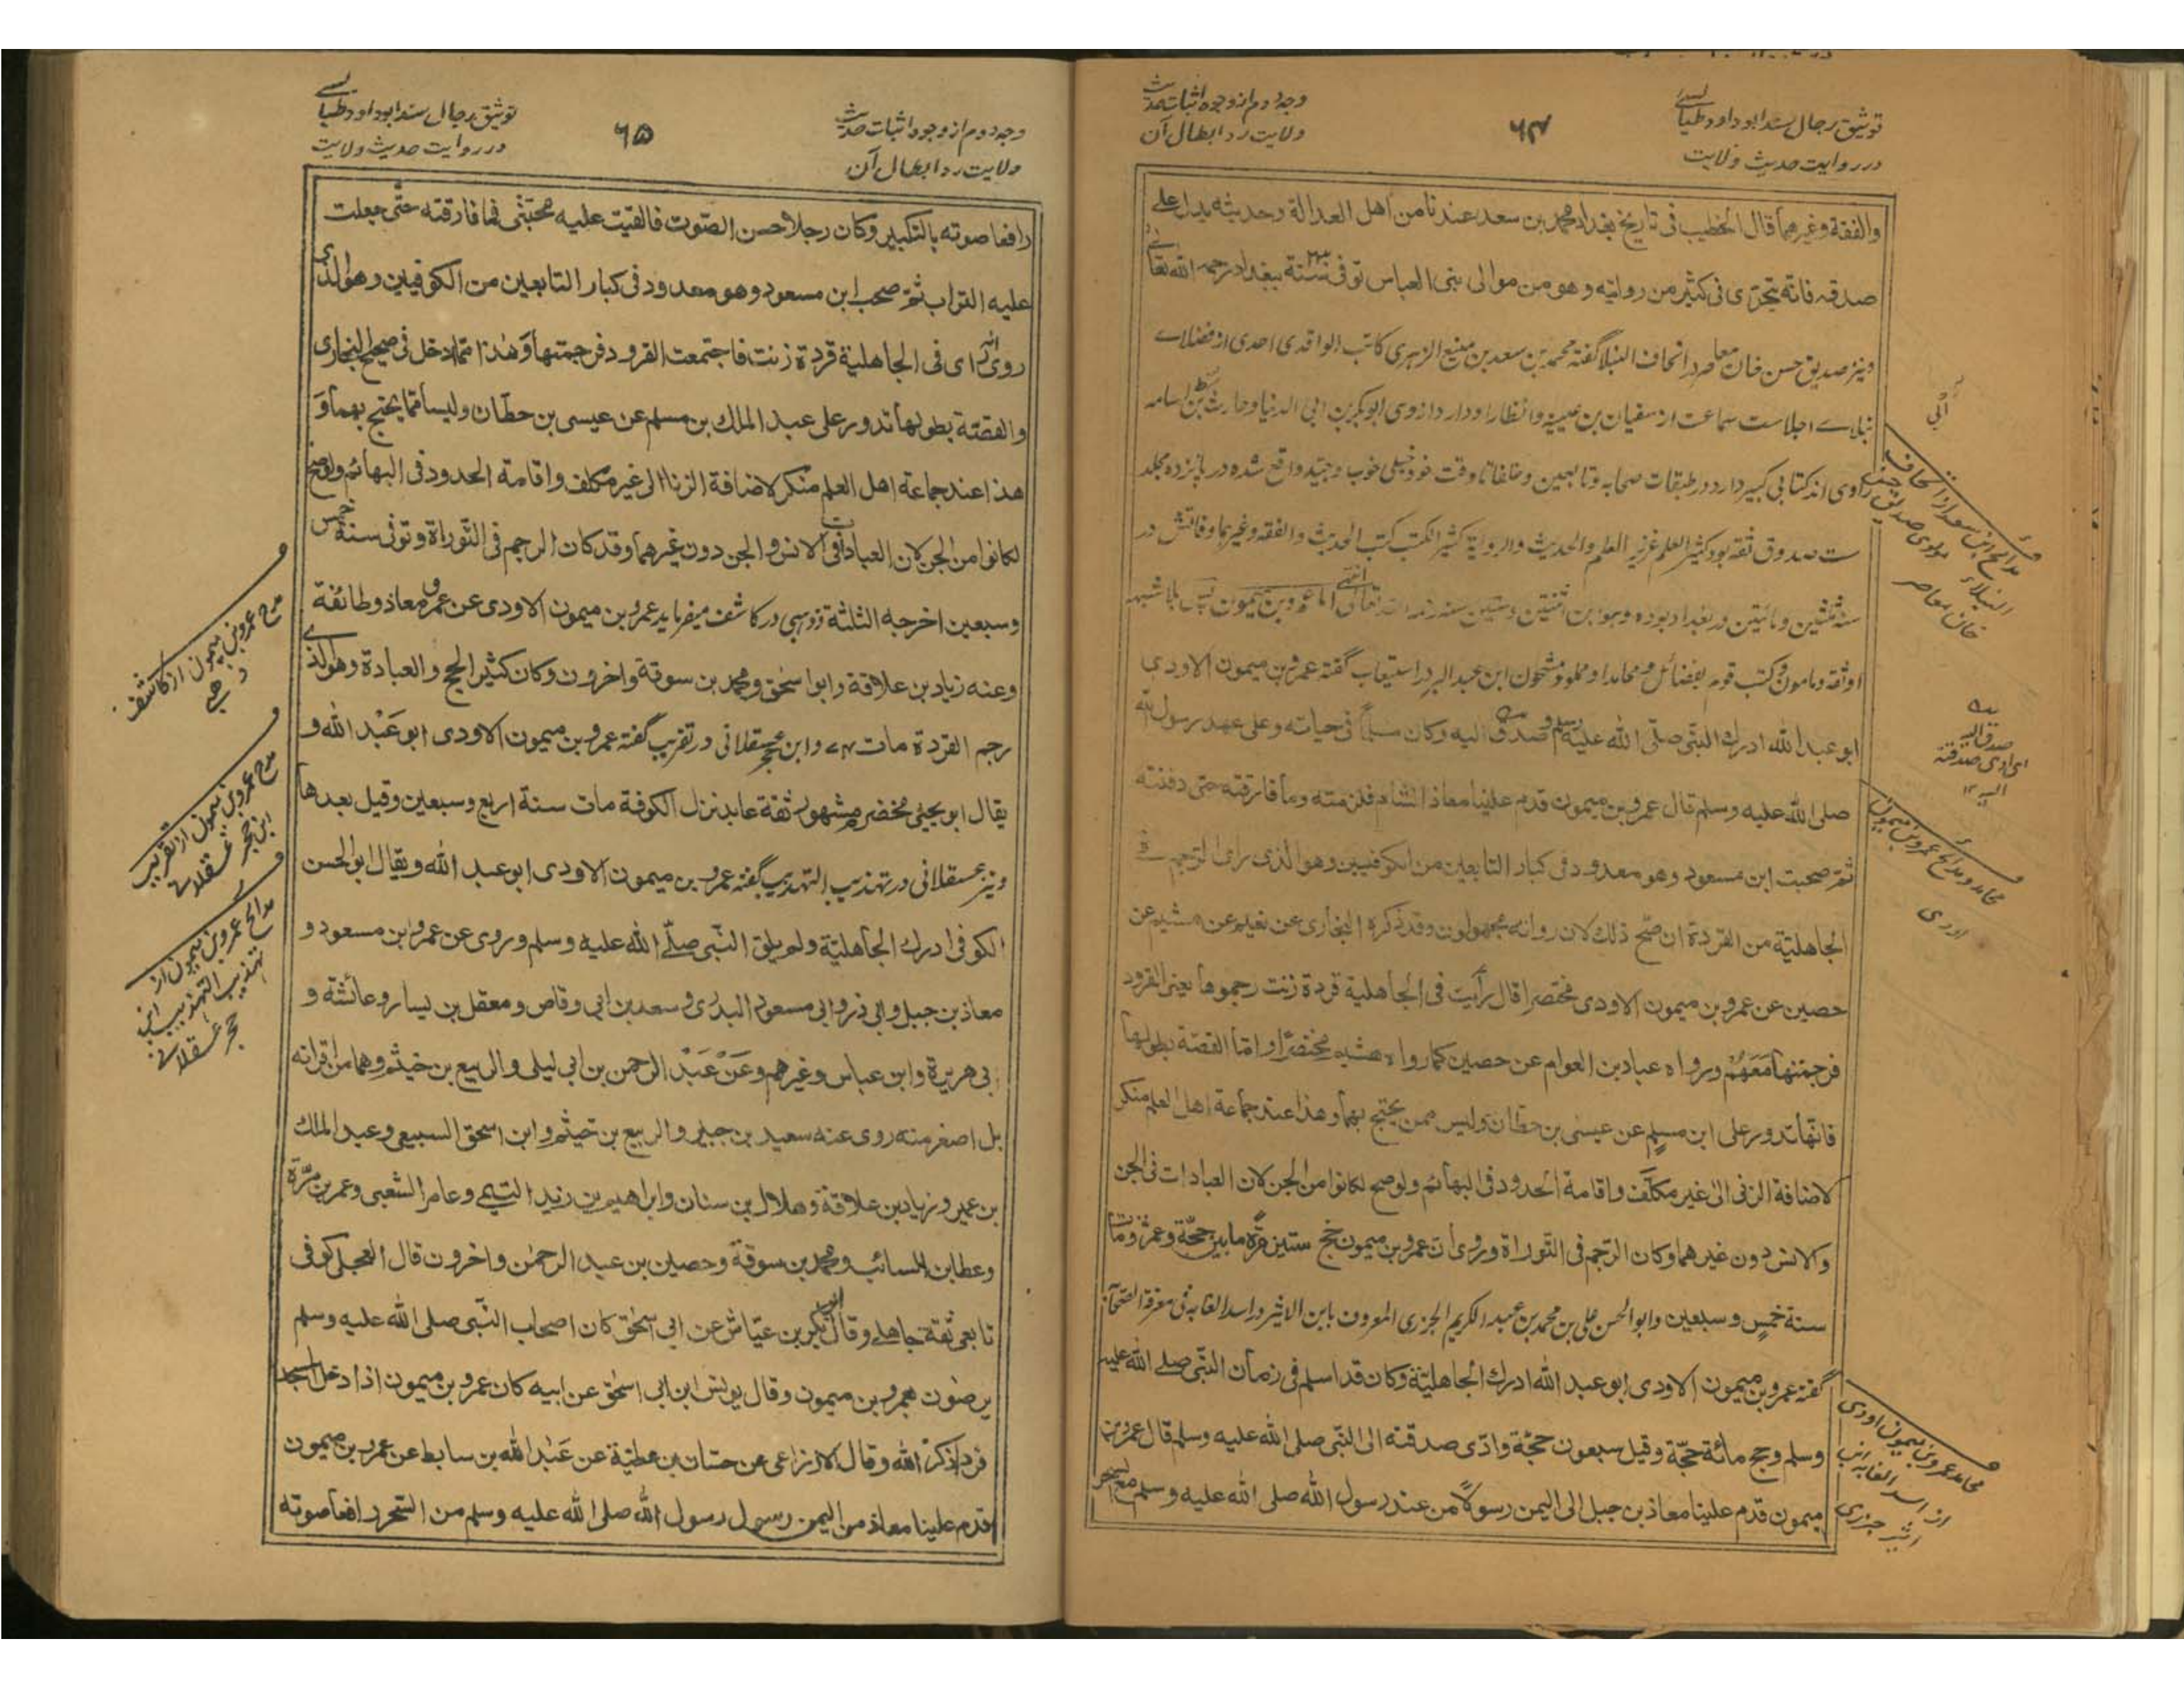 توثیق رجال سند ابوداود طیالسی
در روایت حدیث ولایت
۶۴
وجه دوم از وجوه اثبات حدیث
ولایت رد ابطال آن
والفقة وغیرهما قال الخطیب فی تاریخ بغداد محمد بن سعد عندنا من اهل العدالة وحدیثه یدل علی
صدقه فانه یتحری فی کثیر من روایته وهو من موالی بنی العباس توفی سنة ببغداد رحمه الله تعالی
ونیز صدیق حسن خان معاصر در اتحاف النبلا گفته محمد بن سعد بن منیع الزهری کاتب الواقدی احدی از فضلاے
نبلاے اجلاست سماعت از سفیان بن عیینه وانظار او دارد از وی ابوبکر بن ابی الدنیا وحارث بن ابی اسامه
راوی اند کتابی کبیر دارد در طبقات صحابه وتابعین وخلفا تا وقت خود خیلی خوب وجید واقع شده در پانزده مجلد
ست صدوق ثقه بود کثیر العلم غزیر العلم والحدیث والروایة کثیر الکتب کتب الحدیث والفقه وغیرهما وفاتش در
سنه ثلثین ومائتین در بغداد بوده وهو ابن اثنتین وستین سنه رحمه الله تعالی انتهی اما عمرو بن میمون پس بلا شبهه
او ثقه ومامون وکتب قوم بفضائل ومحامد او مملو ومشحون ابن عبد البر در استیعاب گفته عمرو بن میمون الاودی
ابو عبد الله ادرك النبی صلی الله علیه وسلم وصدق الیه وکان مسلماً فی حیاته وعلی عهد رسول الله
صلی الله علیه وسلم قال عمرو بن میمون قدم علینا معاذ الشام فلزمته وما فارقته حتی دفنته
ثم صحبت ابن مسعود وهو معدود فی کبار التابعین من الکوفیین وهو الذی رای الرجم فی
الجاهلیة من القردة ان صح ذلك لان رواته مجهولون وقد ذکره البخاری عن نعیم عن هشیم عن
حصین عن عمرو بن میمون الاودی مختصرا قال رأیت فی الجاهلیة قردة زنت رجموها یعنی القرود
فرجمتها مَعَهُمْ ورواه عباد بن العوام عن حصین کما رواه هشیم مختصرًا واما القصة بطولها
فانها تدور علی ابن مسلم عن عیسی بن حطان ولیس ممن یحتج بهما وهذا عند جماعة اهل العلم منکر
لاضافة الزنی الی غیر مکلّف واقامة الحدود فی البهائم ولو صح لکانوا من الجن لان العبادات فی الجن
والانس دون غیرهما وکان الرّجم فی التّوراة وروی ان عمرو بن میمون حج ستین مرة مابین حجّة وعمرة ومات
سنة خمسٍ وسبعین وابو الحسن علی بن محمد بن عبد الکریم الجزری المعروف بابن الاثیر در اسد الغابه فی معرفة الصحابة
گفته عمرو بن میمون الاودی ابو عبد الله ادرك الجاهلیّة وکان قد اسلم فی زمان النّبی صلے الله علیه
وسلم وحج مائة حجّة وقیل سبعون حجّة وادّی صدقته الی النّبی صلی الله علیه وسلم قال عمرو بن
میمون قدم علینا معاذ بن جبل الی الیمن رسولاً من عند رسول الله صلی الله علیه وسلم مع السحر
مدائح ابن سعد از اتحاف
النبلاء مولوی صدیق حسن
خان معاصر
محامد ومدائح عمرو بن میمون
اودی
محامد عمرو بن میمون اودی
از اسد الغابه ابن
اثیر جزری
توثیق رجال سند ابوداود طیالسی
در روایت حدیث ولایت
۶۵
وجه دوم از وجوه اثبات حدیث
ولایت رد ابطال آن
رافعا صوته بالتکبیر وکان رجلا حسن الصّوت فالقیت علیه محبّتی فما فارقته حتّی جعلت
علیه التراب ثمّ صحب ابن مسعود وهو معدود فی کبار التابعین من الکوفیین وهو الذی
روی انه رای فی الجاهلیة قردة زنت فاجتمعت القرود فرجمتها وَهٰذا ممّا ادخل فی صحیح البخاری
والقصّة بطولها تدور علی عبد الملك بن مسلم عن عیسی بن حطّان ولیسا ممّا یحتج بهما وَ
هذا عند جماعة اهل العلم منکر لاضافة الزنا الی غیر مکلف واقامة الحدود فی البهائم ولو صح
لکانوا من الجن لان العبادات فی الانس والجن دون غیرهما وقد کان الرجم فی التّوراة وتوفی سنة خمس
وسبعین اخرجه الثلثة وذهبی در کاشف میفرماید عمرو بن میمون الاودی عن عمر ومعاذ وطائفة
وعنه زیاد بن علاقة وابو اسحٰق ومحمد بن سوقة واخرون وکان کثیر الحج والعبادة وهو الذے
رجم القردة مات ۷۴ وابن حجر عسقلانی در تقریب گفته عمرو بن میمون الاودی ابو عَبْد الله وَ
یقال ابو یحیی مخضرم مشهور ثقة عابد نزل الکوفة مات سنة اربع وسبعین وقیل بعدها
ونیز عسقلانی در تهذیب التهذیب گفته عمرو بن میمون الاودی ابو عبد الله ویقال ابو الحسن
الکوفی ادرك الجاهلیّة ولم یلق النّبی صلّے الله علیه وسلم وروی عن عمر وابن مسعود و
معاذ بن جبل وابی ذر وابی مسعود البدری وسعد بن ابی وقاص ومعقل بن یسار وعائشة و
ابی هریرة وابن عباس وغیرهم وعَنْ عَبْد الرحمن بن ابی لیلی والربیع بن خیثم وهما من اقرانه
بل اصغر منه روی عنه سعید بن جبیر والربیع بن خیثم وابن اسحق السبیعی وعبد الملك
بن عمیر وزیاد بن علاقة وهلال بن سنان وابراهیم بن زید التیمی وعامر الشعبی وعمر بن مُرّة
وعطا بن السائب ومحمد بن سوقة وحصین بن عبد الرحمٰن واخرون قال العجلی کوفی
تابعی ثقة جاهلے وقال ابو بکر بن عیّاش عن ابی اسحٰق کان اصحاب النّبی صلی الله علیه وسلم
یرضون بعمرو بن میمون وقال یونس ابن ابی اسحٰق عن ابیه کان عمرو بن میمون اذا دخل المسجد
فرا ذکر الله وقال الاوزاعی عن حسّان بن عطیّة عن عَبْد الله بن سابط عن عمرو بن میمون
قدم علینا معاذ من الیمن رسول رسول الله صلی الله علیه وسلم من السّحر رافعا صوته
مدح عمرو بن میمون از کاشف
ذهبی
مدح عمرو بن میمون از تقریب
ابن حجر عسقلانی
مدائح عمرو بن میمون از
تهذیب التهذیب ابن
حجر عسقلانی